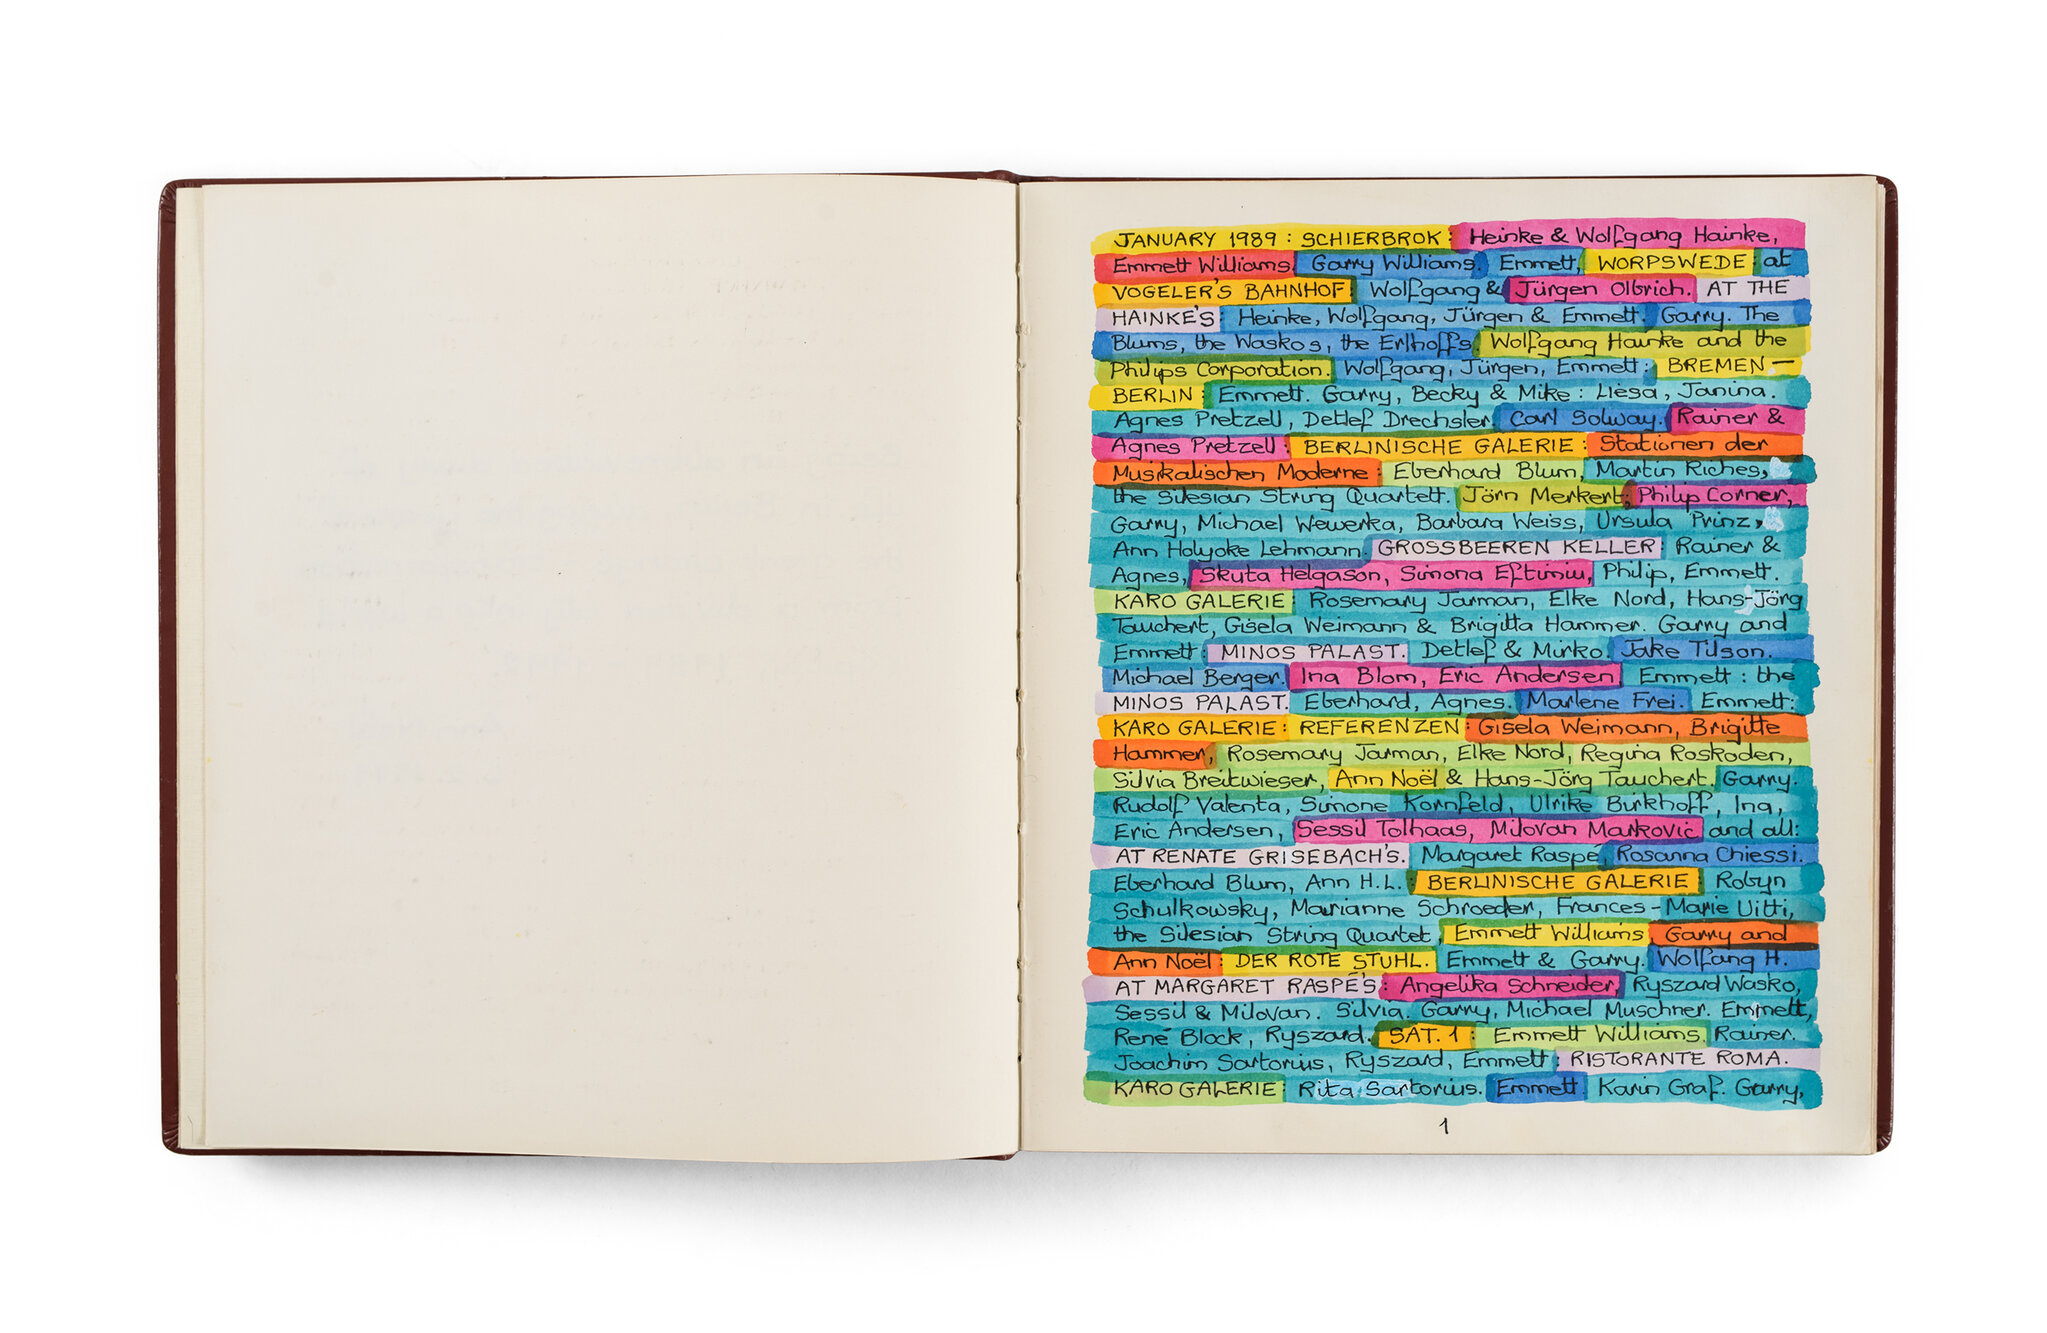 JANUARY 1989 : SCHIERBROK : Heinke & Wolfgang Hainke,
Emmett Williams. Garry Williams. Emmett, WORPSWEDE : at
VOGELER'S BAHNHOF : Wolfgang & Jürgen Olbrich. AT THE
HAINKE'S : Heinke, Wolfgang, Jürgen & Emmett. Garry. The
Blums, the Waskos, the Erlhoffs. Wolfgang Hainke and the
Philips Corporation. Wolfgang, Jürgen, Emmett : BREMEN —
BERLIN : Emmett. Garry, Becky & Mike : Liesa, Janina.
Agnes Pretzell, Detlef Drechsler. Carl Solway. Rainer &
Agnes Pretzell : BERLINISCHE GALERIE : Stationen der
Musikalischen Moderne : Eberhard Blum, Martin Riches,
the Silesian String Quartett. Jörn Merkert, Philip Corner,
Garry, Michael Wewerka, Barbara Weiss, Ursula Prinz,
Ann Holyoke Lehmann. GROSSBEEREN KELLER : Rainer &
Agnes, Skuta Helgason, Simona Eftimiu, Philip, Emmett.
KARO GALERIE : Rosemary Jarman, Elke Nord, Hans-Jörg
Tauchert, Gisela Weimann & Brigitta Hammer. Garry and
Emmett : MINOS PALAST. Detlef & Mirko. Jake Tilson.
Michael Berger. Ina Blom, Eric Andersen Emmett : the
MINOS PALAST. Eberhard, Agnes. Marlene Frei. Emmett :
KARO GALERIE : REFERENZEN : Gisela Weimann, Brigitte
Hammer, Rosemary Jarman, Elke Nord, Regina Roskoden,
Silvia Breitwieser, Ann Noël & Hans-Jörg Tauchert, Garry.
Rudolf Valenta, Simone Kornfeld, Ulrike Burkhoff, Ina,
Eric Andersen, Sessil Tolhaas, Milovan Markovic and all :
AT RENATE GRISEBACH'S. Margaret Raspe, Rosanna Chiessi.
Eberhard Blum, Ann H.L. : BERLINISCHE GALERIE Robyn
Schulkowsky, Marianne Schroeder, Frances-Marie Uitti,
the Silesian String Quartet, Emmett Williams, Garry and
Ann Noël : DER ROTE STUHL. Emmett & Garry. Wolfang H.
AT MARGARET RASPÉ'S : Angelika Schneider, Ryszard Wasko,
Sessil & Milovan. Silvia. Garry, Michael Muschner. Emmett,
René Block, Ryszard. SAT. 1 : Emmett Williams. Rainer.
Joachim Sartorius, Ryszard, Emmett : RISTORANTE ROMA.
KARO GALERIE : Rita Sartorius. Emmett. Karin Graf. Garry,
1